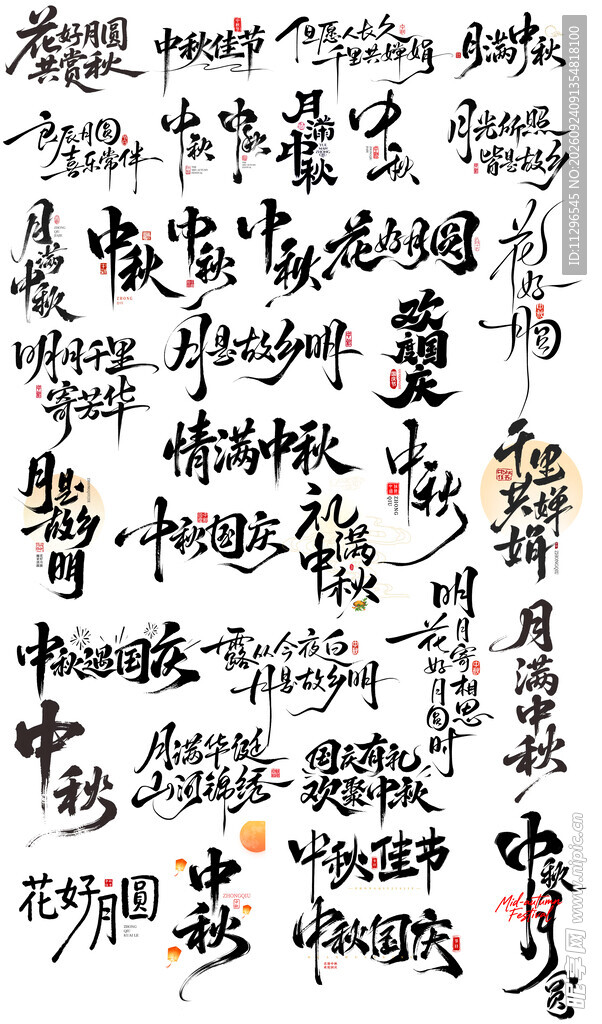 花好月圆
共赏秋
中秋佳节
但愿人长久
千里共婵娟
月满中秋
良辰月圆
喜乐常伴
中秋
中秋
月满中秋
中秋
月光所照
皆是故乡
月满
中秋
中秋
ZHONG
QIU
中秋
中秋
花好月圆
花好
月圆
明月千里
寄芳华
月是故乡明
欢
度国
庆
情满中秋
中秋
ZHONG
QIU
千里
共婵
娟
月是
故乡
明
中秋国庆
礼满
中秋
中秋遇国庆
露从今夜白
月是故乡明
明月寄相思
花好月圆时
月满中秋
中秋
月满华诞
山河锦绣
国庆有礼
欢聚中秋
花好月圆
ZHONG
QIU
KUAI LE
中秋
ZHONGQIU
中秋佳节
中秋国庆
中秋
月圆
Mid-autumn
Festival
ID:11296545 NO:20260924091354818100
昵享网 www.nipic.cn